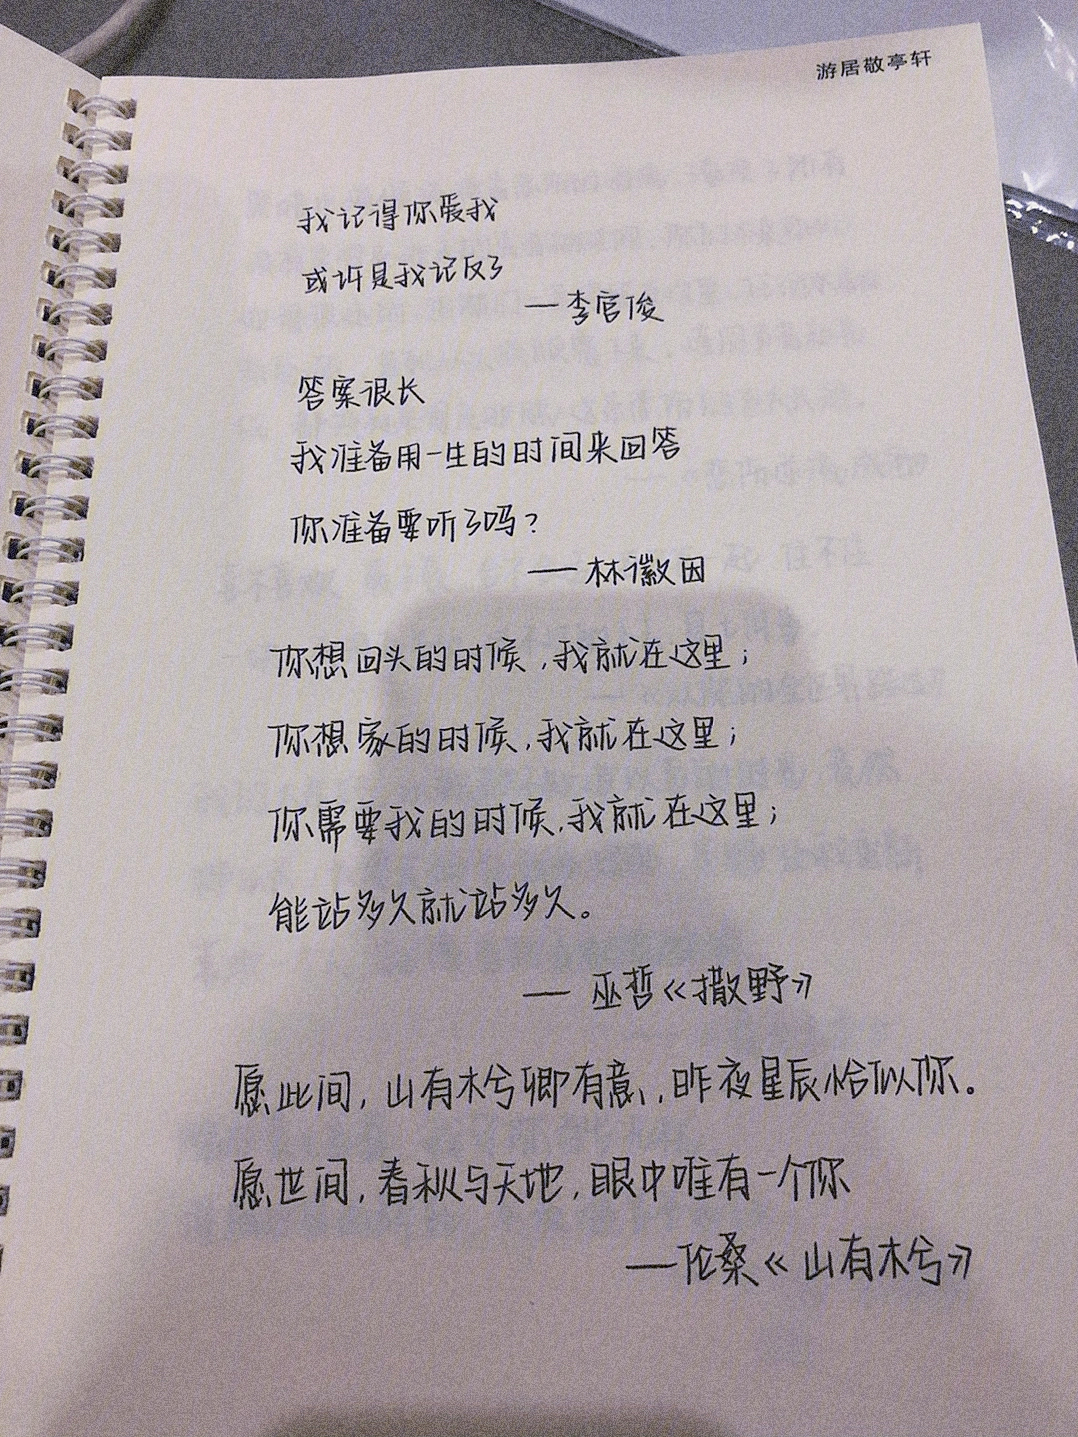 游居敬亭轩
我记得你爱我
或许是我记反了
—李宫俊
答案很长
我准备用一生的时间来回答
你准备要听了吗？
——林徽因
你想回头的时候，我就在这里；
你想家的时候，我就在这里；
你需要我的时候，我就在这里；
能站多久就站多久。
—巫哲《撒野》
愿此间，山有木兮卿有意，昨夜星辰恰似你。
愿世间，春秋与天地，眼中唯有一个你
—伦桑《山有木兮》